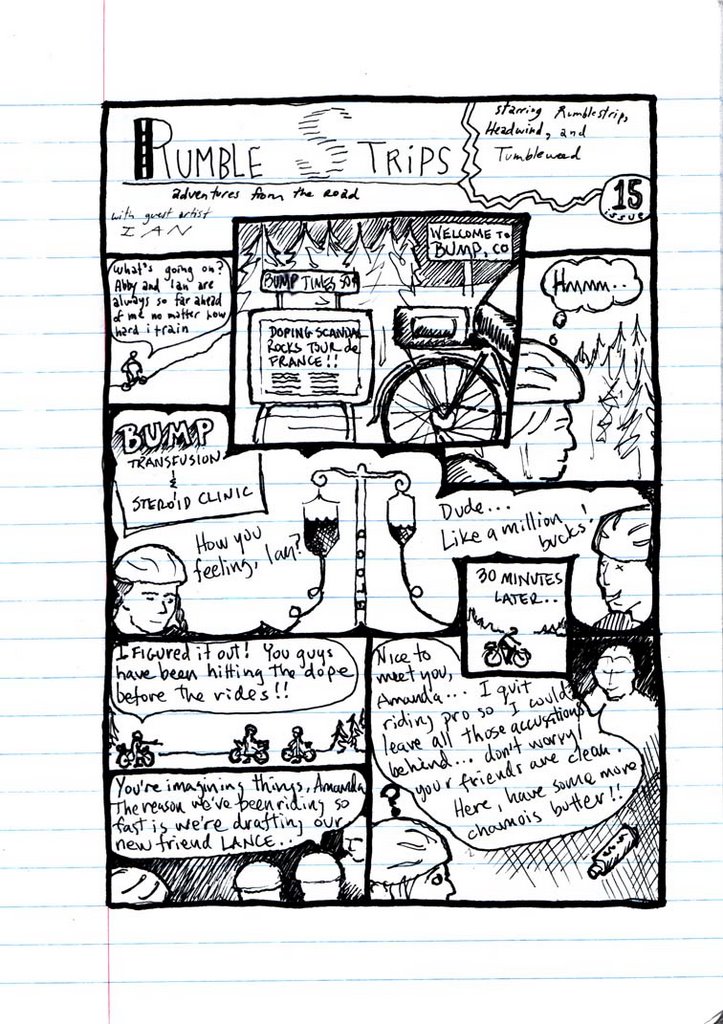 RUMBLE STRIPS
adventures from the road
with guest artist
IAN
starring Rumblestrip,
Headwind, and
Tumbleweed
15
issue
What's going on?
Abby and Ian are
always so far ahead
of me no matter how
hard i train
WELCOME TO
BUMP, CO
BUMP TIMES 50¢
DOPING SCANDAL
ROCKS TOUR de
FRANCE!!
Hmmm..
BUMP
TRANSFUSION
&
STEROID CLINIC
How you
feeling, Ian?
Dude...
Like a million
bucks!
30 MINUTES
LATER..
I FIGURED it out! You guys
have been hitting the dope
before the rides!!
Nice to
meet you,
Amanda... I quit
riding pro so I could
leave all those accusations
behind... don't worry
your friends are clean.
Here, have some more
chamois butter!!
You're imagining things, Amanda
The reason we've been riding so
fast is we're drafting our
new friend LANCE...